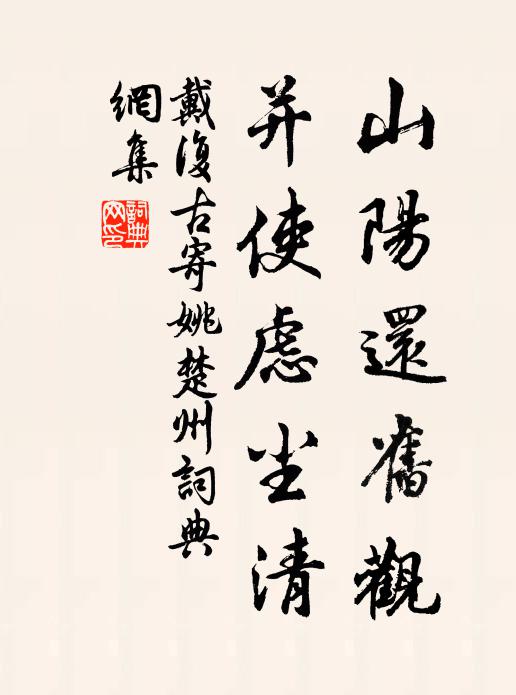 山陽還舊觀
并使虑尘清
戴復古寄姚楚州詞典
網集
詞典
网印